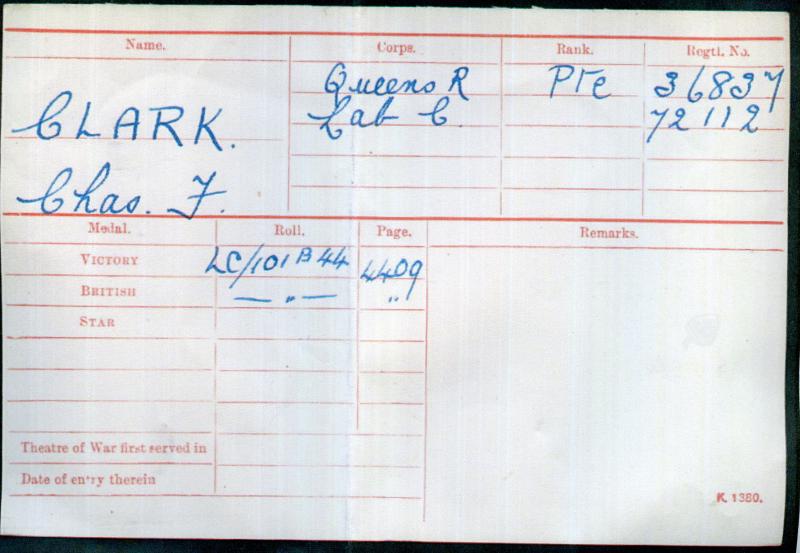 Name. Corps. Rank. Regtl. No.
Queens R Pte 36837
CLARK. Lab C. 72112
Chas. F.
Medal. Roll. Page. Remarks.
VICTORY LC/101 B 44 4409
BRITISH — „ — „
STAR
Theatre of War first served in
Date of entry therein
K. 1380.